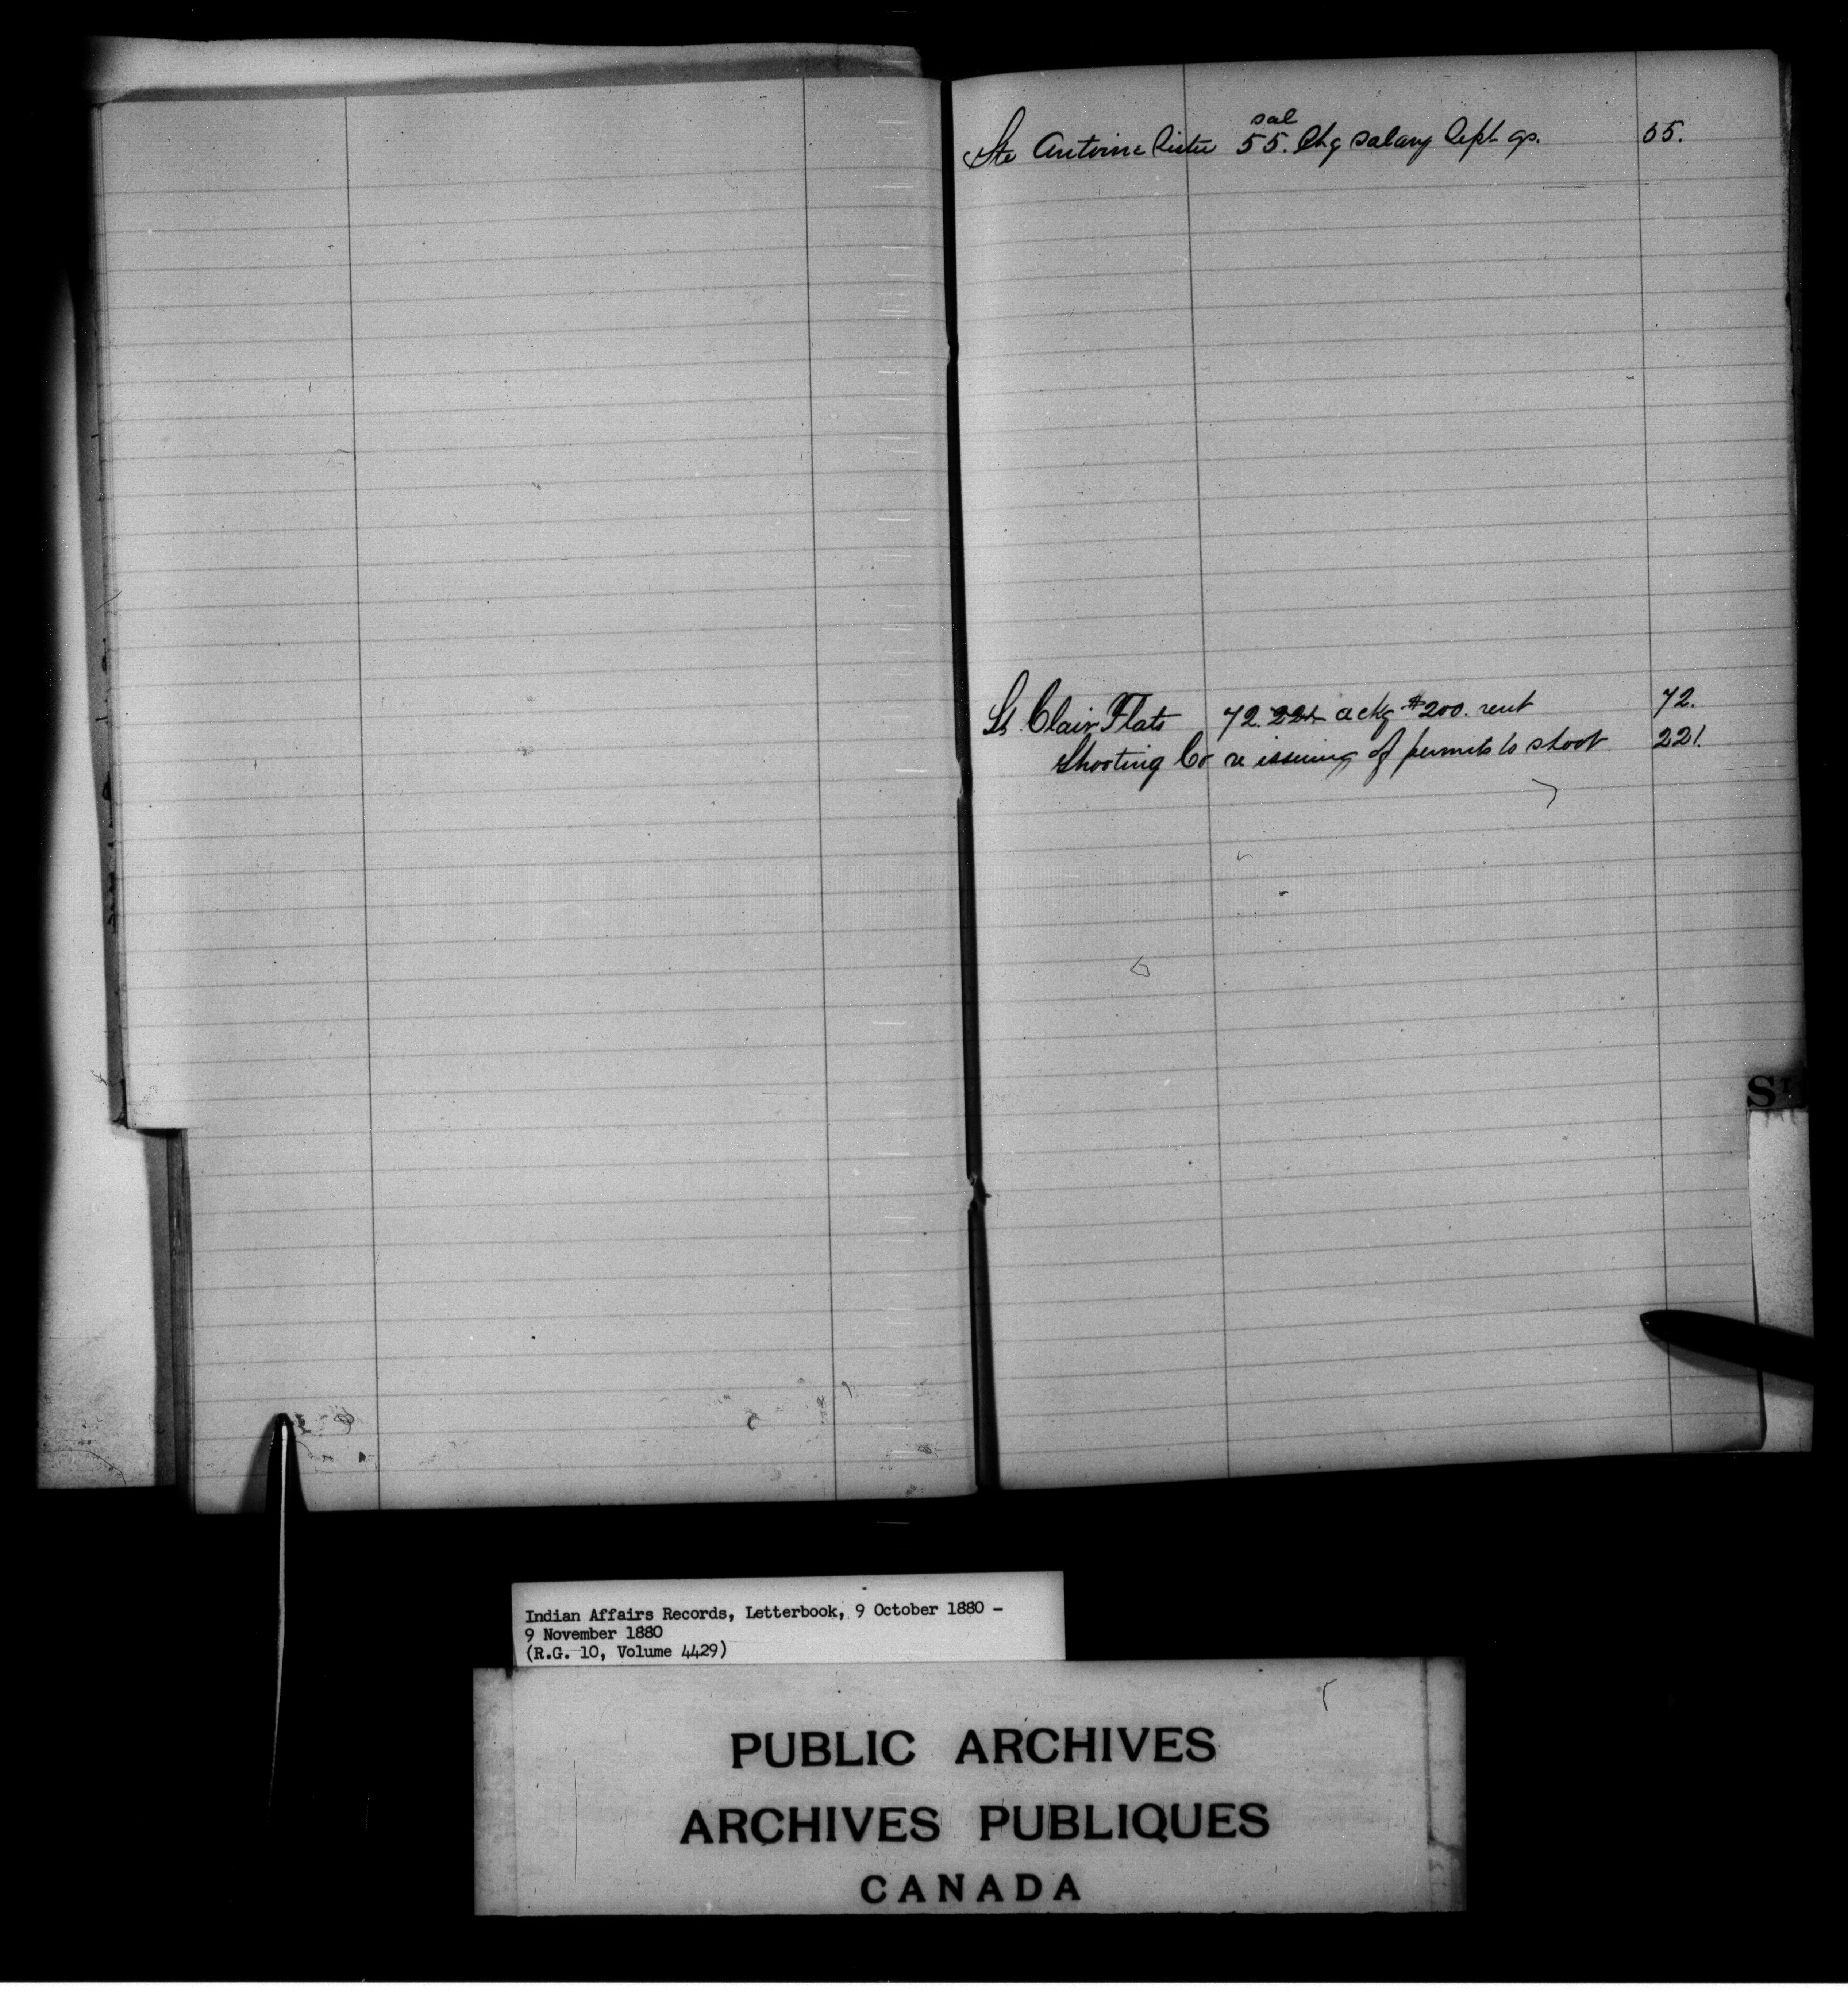 sal
Ste Antoine Sister 55. Chq salary Sept qr. 55.
St. Clair Flats 72. 221. ackg $200. rent 72.
Shooting Co re issuing of permits to shoot 221.
St
Indian Affairs Records, Letterbook, 9 October 1880 -
9 November 1880
(R.G. 10, Volume 4429)
PUBLIC ARCHIVES
ARCHIVES PUBLIQUES
CANADA